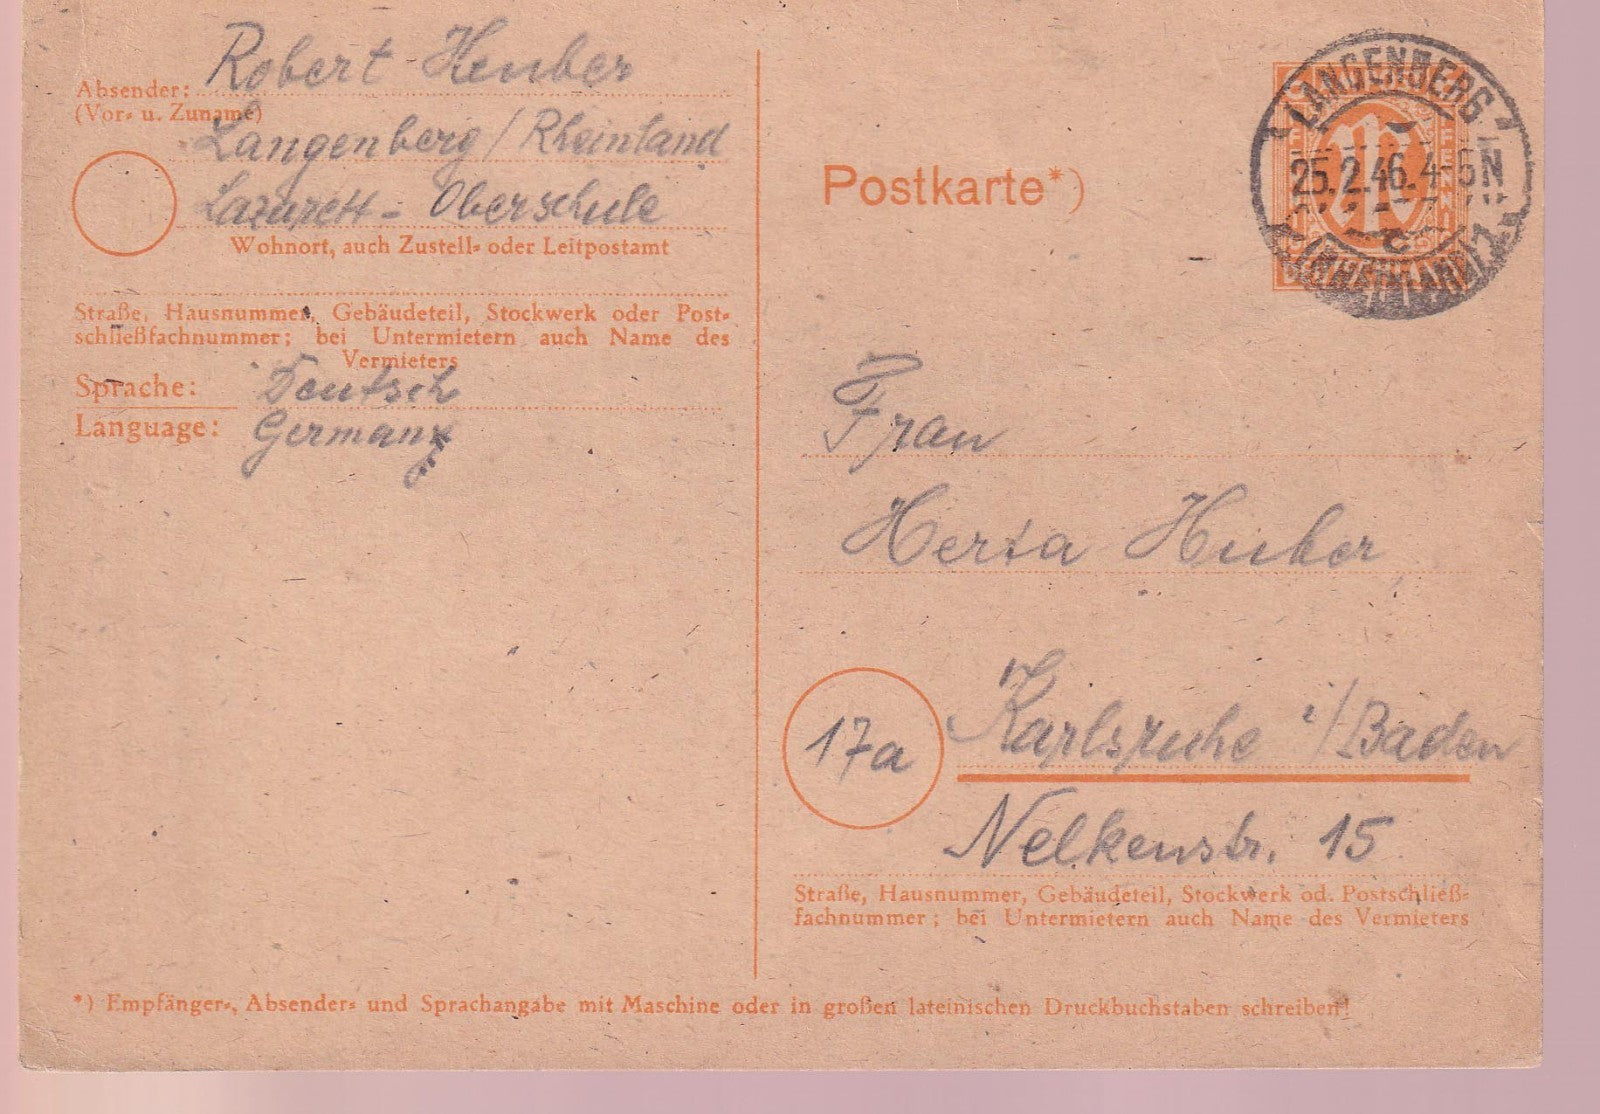 Robert Heuber
Absender:
(Vor- u. Zuname)
Langenberg / Rheinland
Lazarett - Oberschule
Wohnort, auch Zustell- oder Leitpostamt
Straße, Hausnummer, Gebäudeteil, Stockwerk oder Post-
schließfachnummer; bei Untermietern auch Name des
Vermieters
Sprache: Deutsch
Language: German
Postkarte*)
LANGENBERG
25.2.46.4-5N
c
(RHEINLAND)
Frau
Herta Huber
17a Karlsruhe i/Baden
Nelkenstr. 15
Straße, Hausnummer, Gebäudeteil, Stockwerk od. Postschließ-
fachnummer; bei Untermietern auch Name des Vermieters
*) Empfänger-, Absender- und Sprachangabe mit Maschine oder in großen lateinischen Druckbuchstaben schreiben!